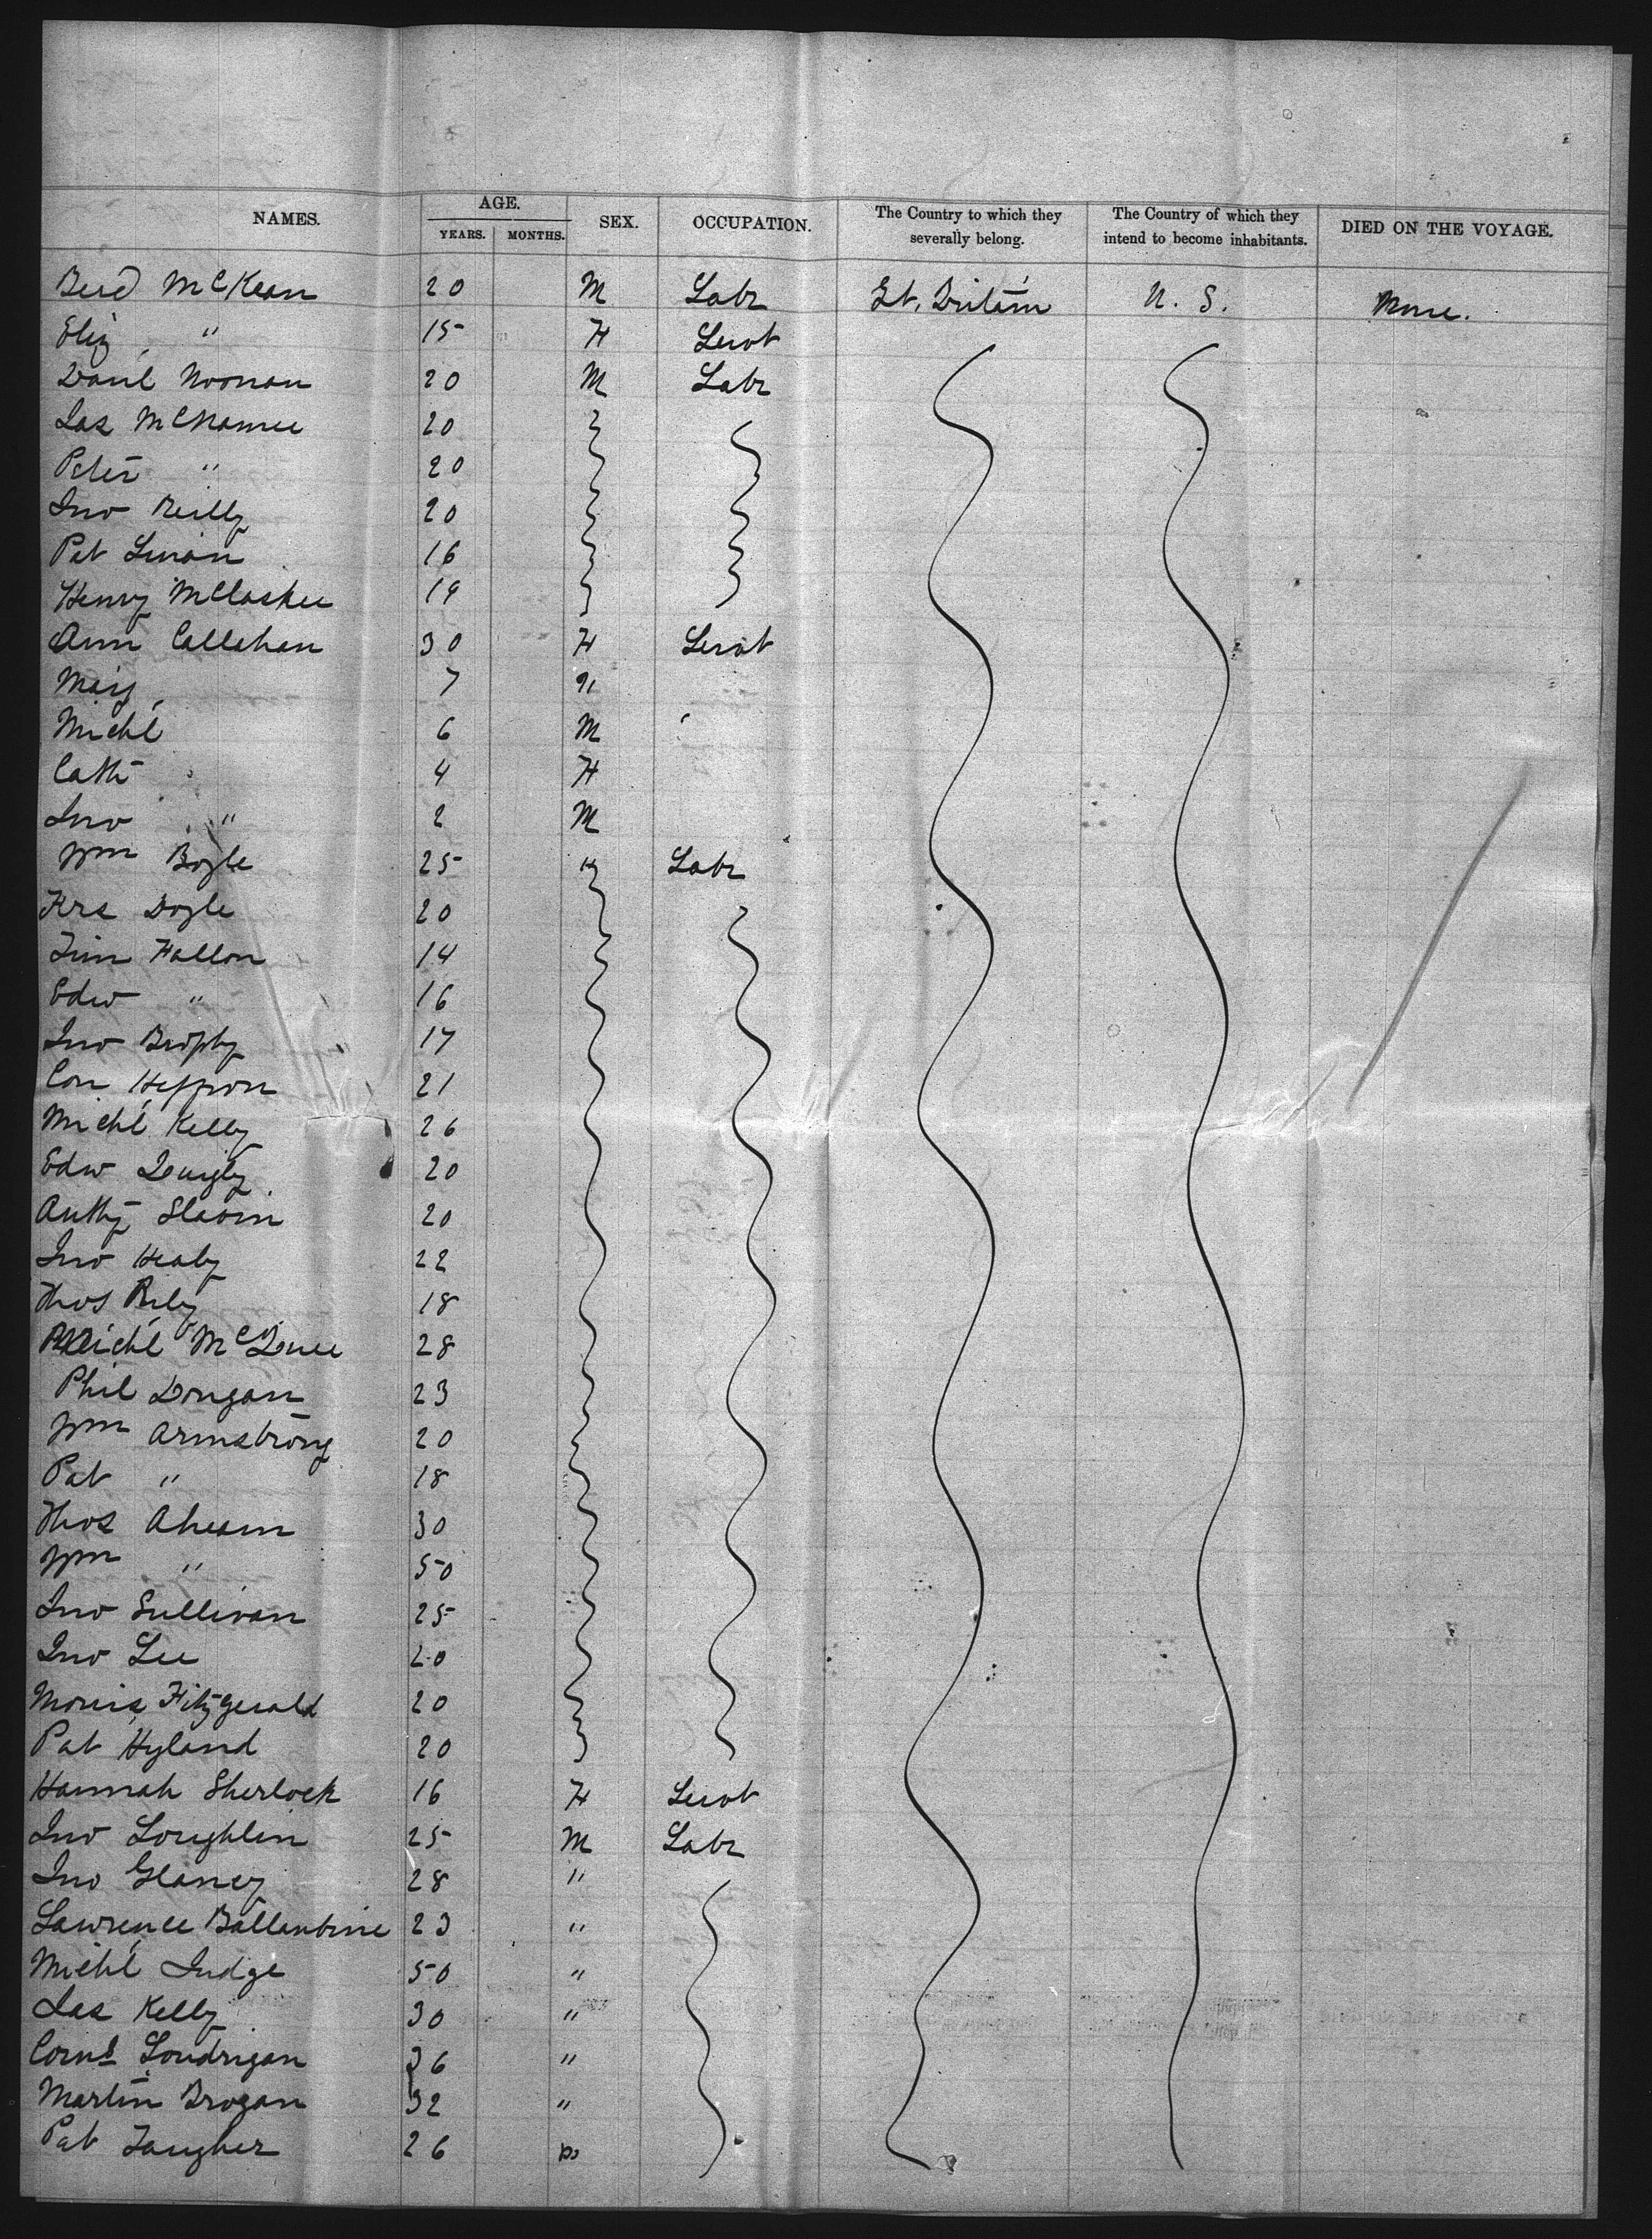 NAMES. AGE. YEARS. MONTHS. SEX. OCCUPATION. The Country to which they severally belong. The Country of which they intend to become inhabitants. DIED ON THE VOYAGE.
McKean 20 M Labr Gt. Britain U. S. None.
Eliz " 15 F Servt
Danl Noonan 20 M Labr
Jas McNamee 20
Peter " 20
Jno Reilly 20
Pat 16
Henry McCloskee 19
Ann Callahan 30 F Servt
Marg 7 "
Michl 6 M
Cath 4 F
Jno " 2 M
Wm Boyle 25 " Labr
Frs Doyle 20
Tim Fallon 14
Edw " 16
Jno Brophy 17
Con Heffron 21
Michl Kelly 26
Edw Quigley 20
Anthy Slavin 20
Jno Healy 22
Thos Riley 18
Michl 28
Phil Dougan 23
Wm Armstrong 20
Pat " 18
Thos Ahearn 30
Wm " 50
Jno Sullivan 25
Jno Lee 20
Morris Fitzgerald 20
Pat Hyland 20
Hannah Sherlock 16 F Servt
Jno Loughlin 25 M Labr
Jno Glancy 28 "
Lawrence Ballantine 23 "
Michl Judge 50 "
Jas Kelly 30 "
Corns Londrigan 36 "
Martin Brogan 32 "
Pat Taugher 26 "